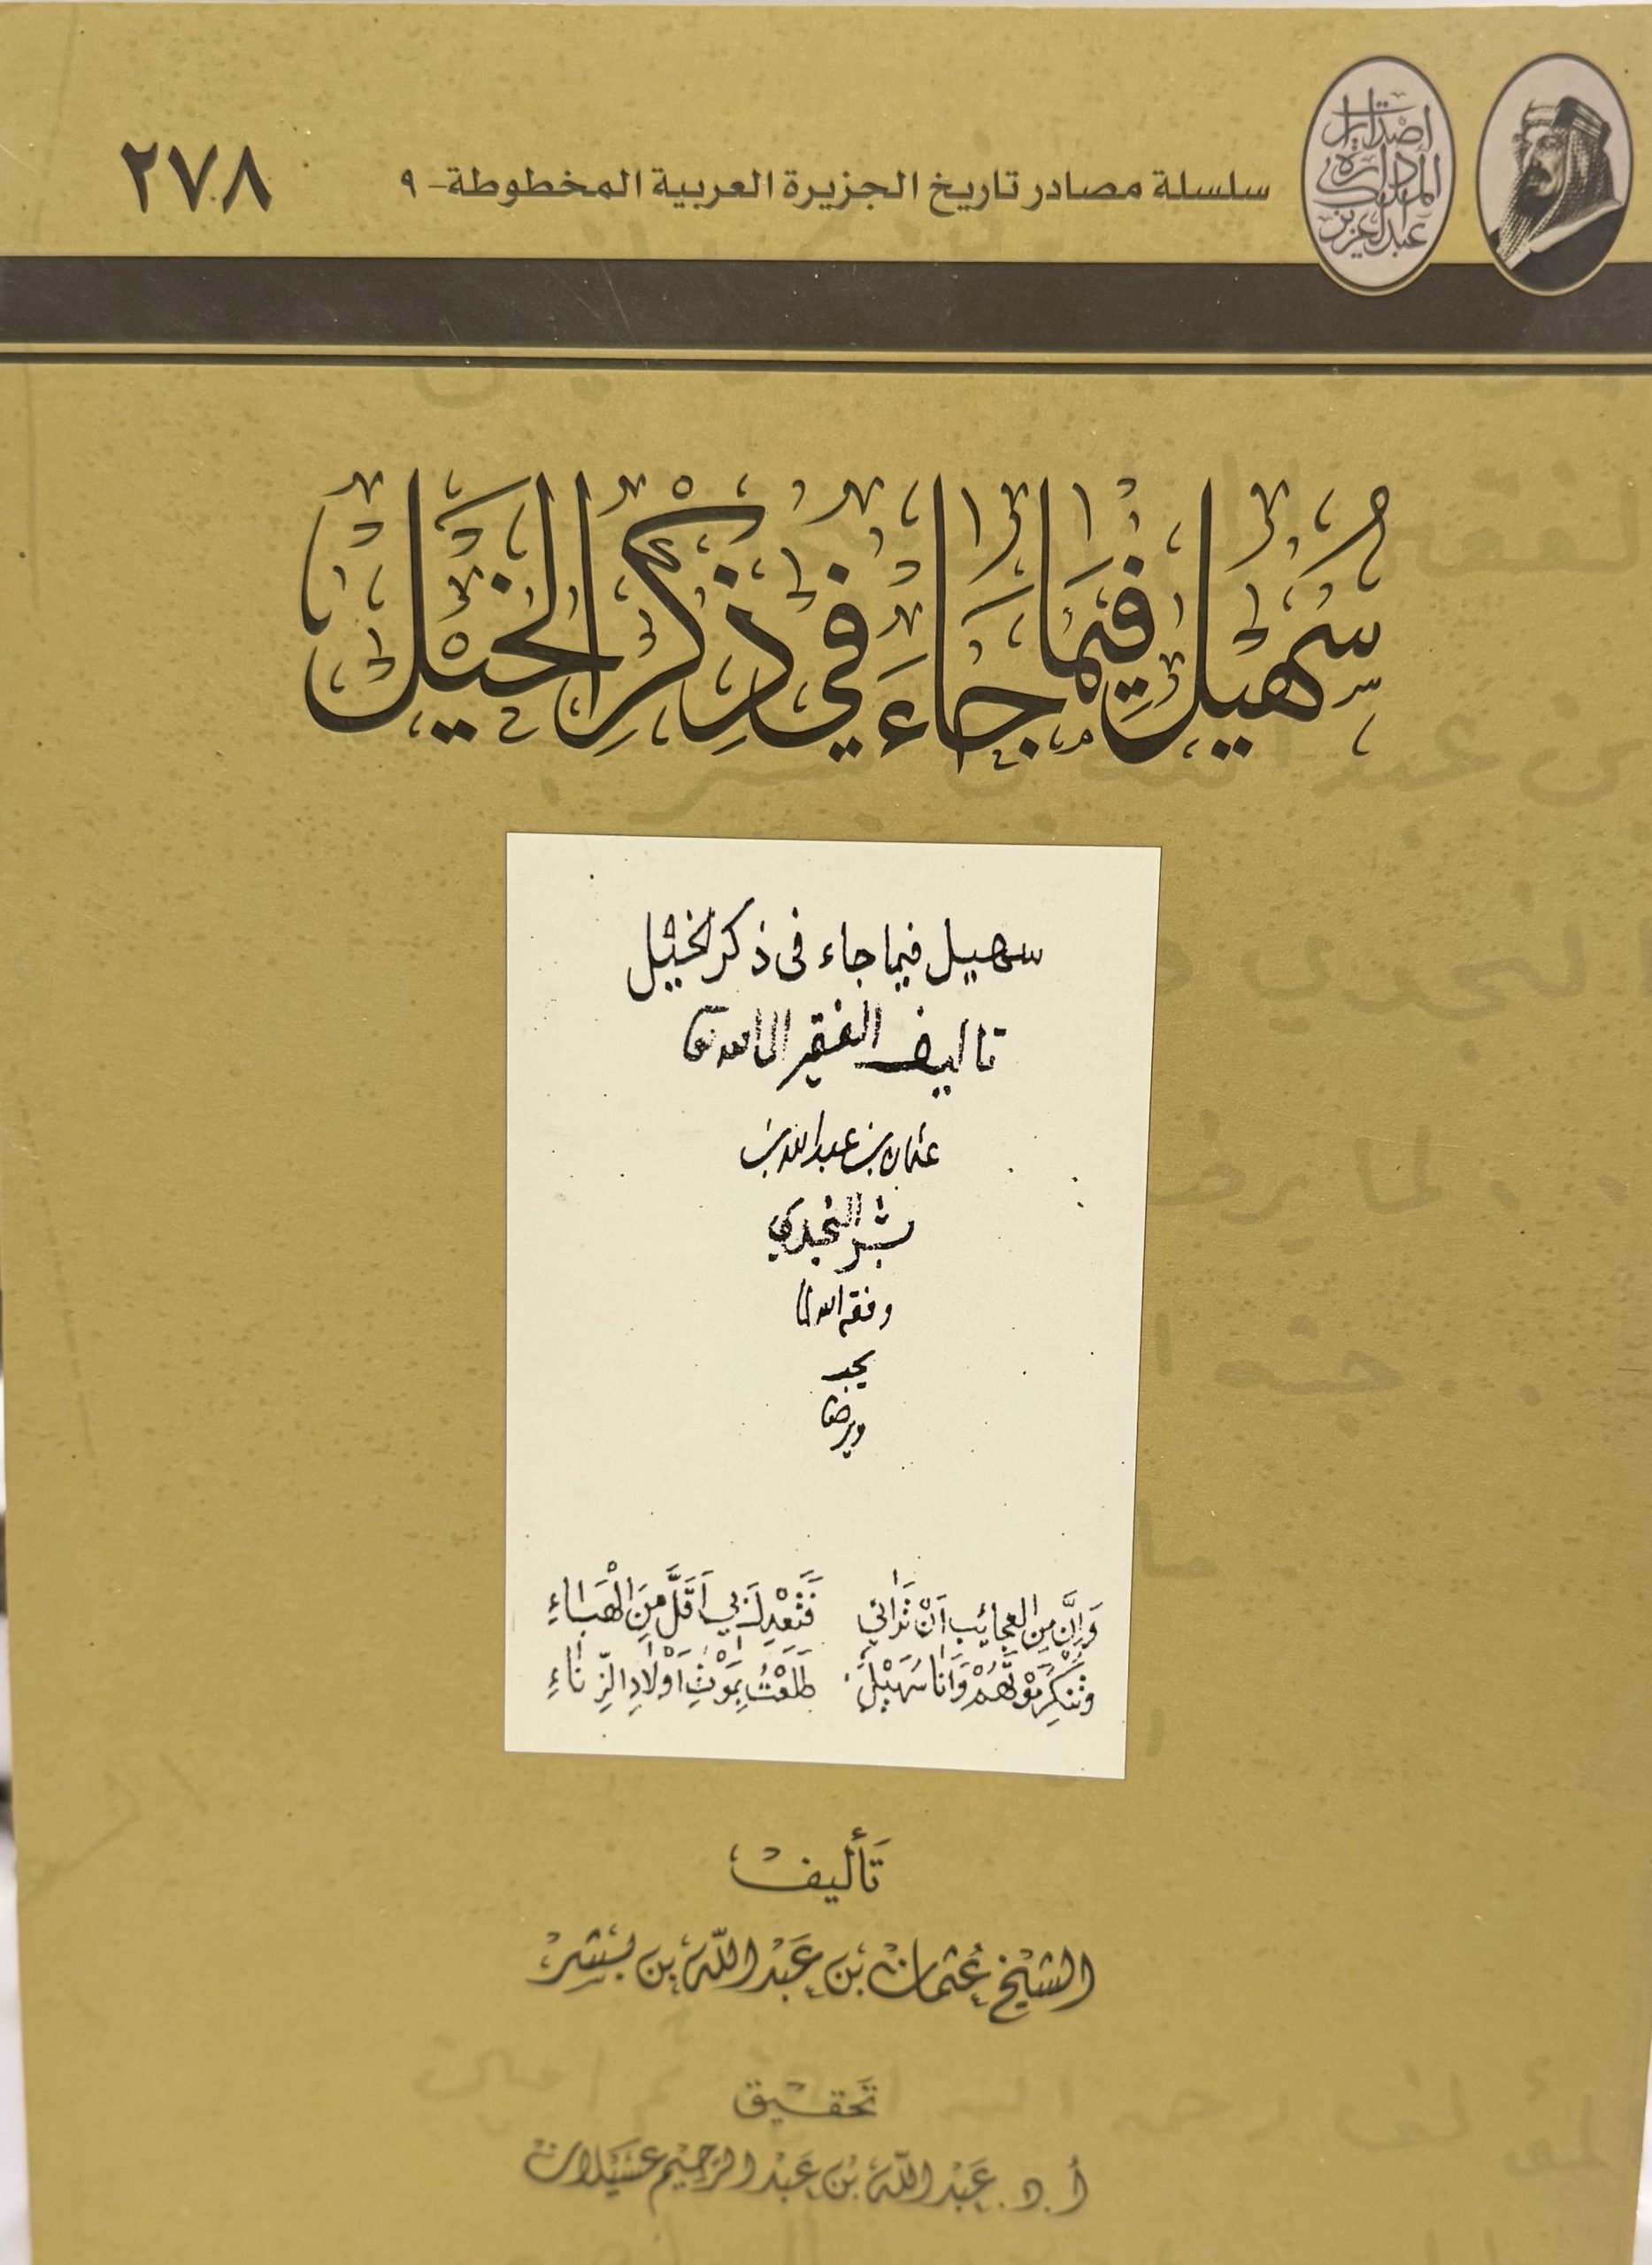 إصدارات
دارة
الملك
عبدالعزيز
سلسلة مصادر تاريخ الجزيرة العربية المخطوطة - ٩
٢٧٨
سُهَيل فيمَا جَاءَ في ذِكْرِ الخَيْل
سهيل فيما جاء فى ذكر الخيل
تاليف الفقير الى الله تعا
عثمان بن عبد الله بن
بشر النجدي
وفقه الله لما
يحبه
ويرضا
وَإِنَّ مِن العجائِبِ اَنْ تَرَانِي فَتَعْدِلَ بِي اَقَلَّ مِنَ الْهَبَاءِ
وَتُنكِرُ مَوْتَهُمْ وَاَنَا سُهَيْلٌ طَلَعْتُ بِمَوْتِ اَوْلَادِ الزِّنَاءِ
تَأليف
الشيخ عُثمان بن عَبْد اللّه بن بشر
تحقيق
أ. د. عَبْد اللّه بن عَبْد الرَّحِيم عسَيلان